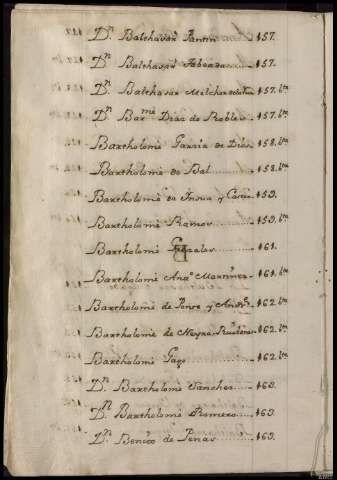 Dn. Balthasar Pantin 157.
Dn. Balthasar Taboaza 157.
Dn. Balthasar Melchor 157. bta
Dn. Barmé Diaz de Robles 157. bta
Bartholomé Garcia de Dios 158. bta
Bartholomé de Bal 158. bta
Bartholomé da Insua y 159.
Bartholomé Ramos 159. bta
Bartholomé Gonzales 161.
Bartholomé Anto. Martinez 161. bta
Bartholomé de Ponte y Andre. 162. bta
Bartholomé de Neyra 162. bta
Bartholomé Gago 162. bta
Dn. Bartholomé Sanchez 163.
Dn. Bartholomé Romero 163.
Dn. Benito de Penas 163.